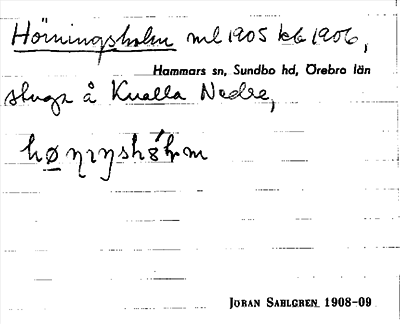 Hörningsholm ml 1905 kb 1906,
Hammars sn, Sundbo hd, Örebro län
stuga å Kvalla Nedre,
JÖRAN SAHLGREN 1908-09